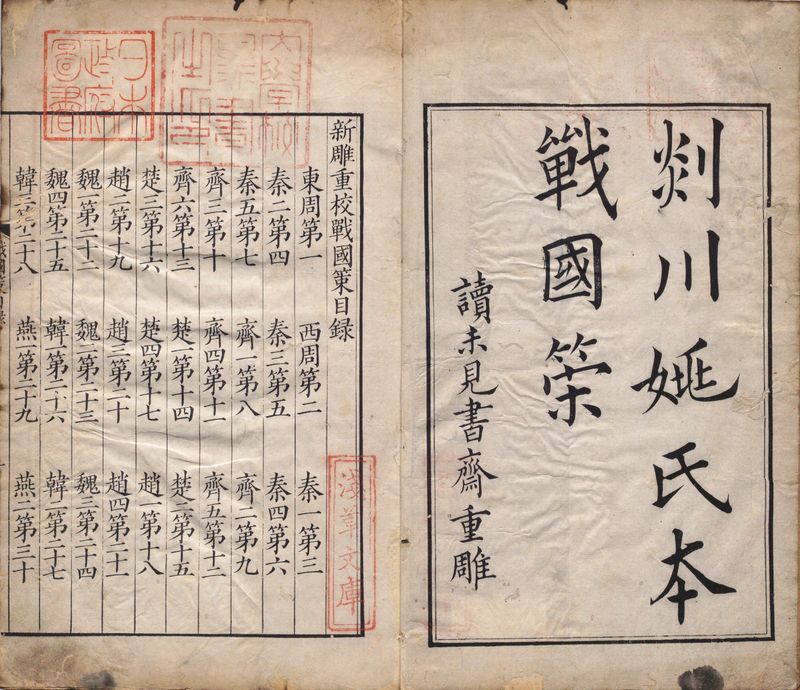 剡川姚氏本
戰國策
讀未見書齋重雕
大學校圖書之印
日本政府圖書
新雕重校戰國策目録
東周第一 西周第二 秦一第三
秦二第四 秦三第五 秦四第六
秦五第七 齊一第八 齊二第九
齊三第十 齊四第十一 齊五第十二
齊六第十三 楚一第十四 楚二第十五
楚三第十六 楚四第十七 趙一第十八
趙二第十九 趙三第二十 趙四第二十一
魏一第二十二 魏二第二十三 魏三第二十四
魏四第二十五 韓一第二十六 韓二第二十七
韓三第二十八 燕一第二十九 燕二第三十
戰國策目録
淺草文庫